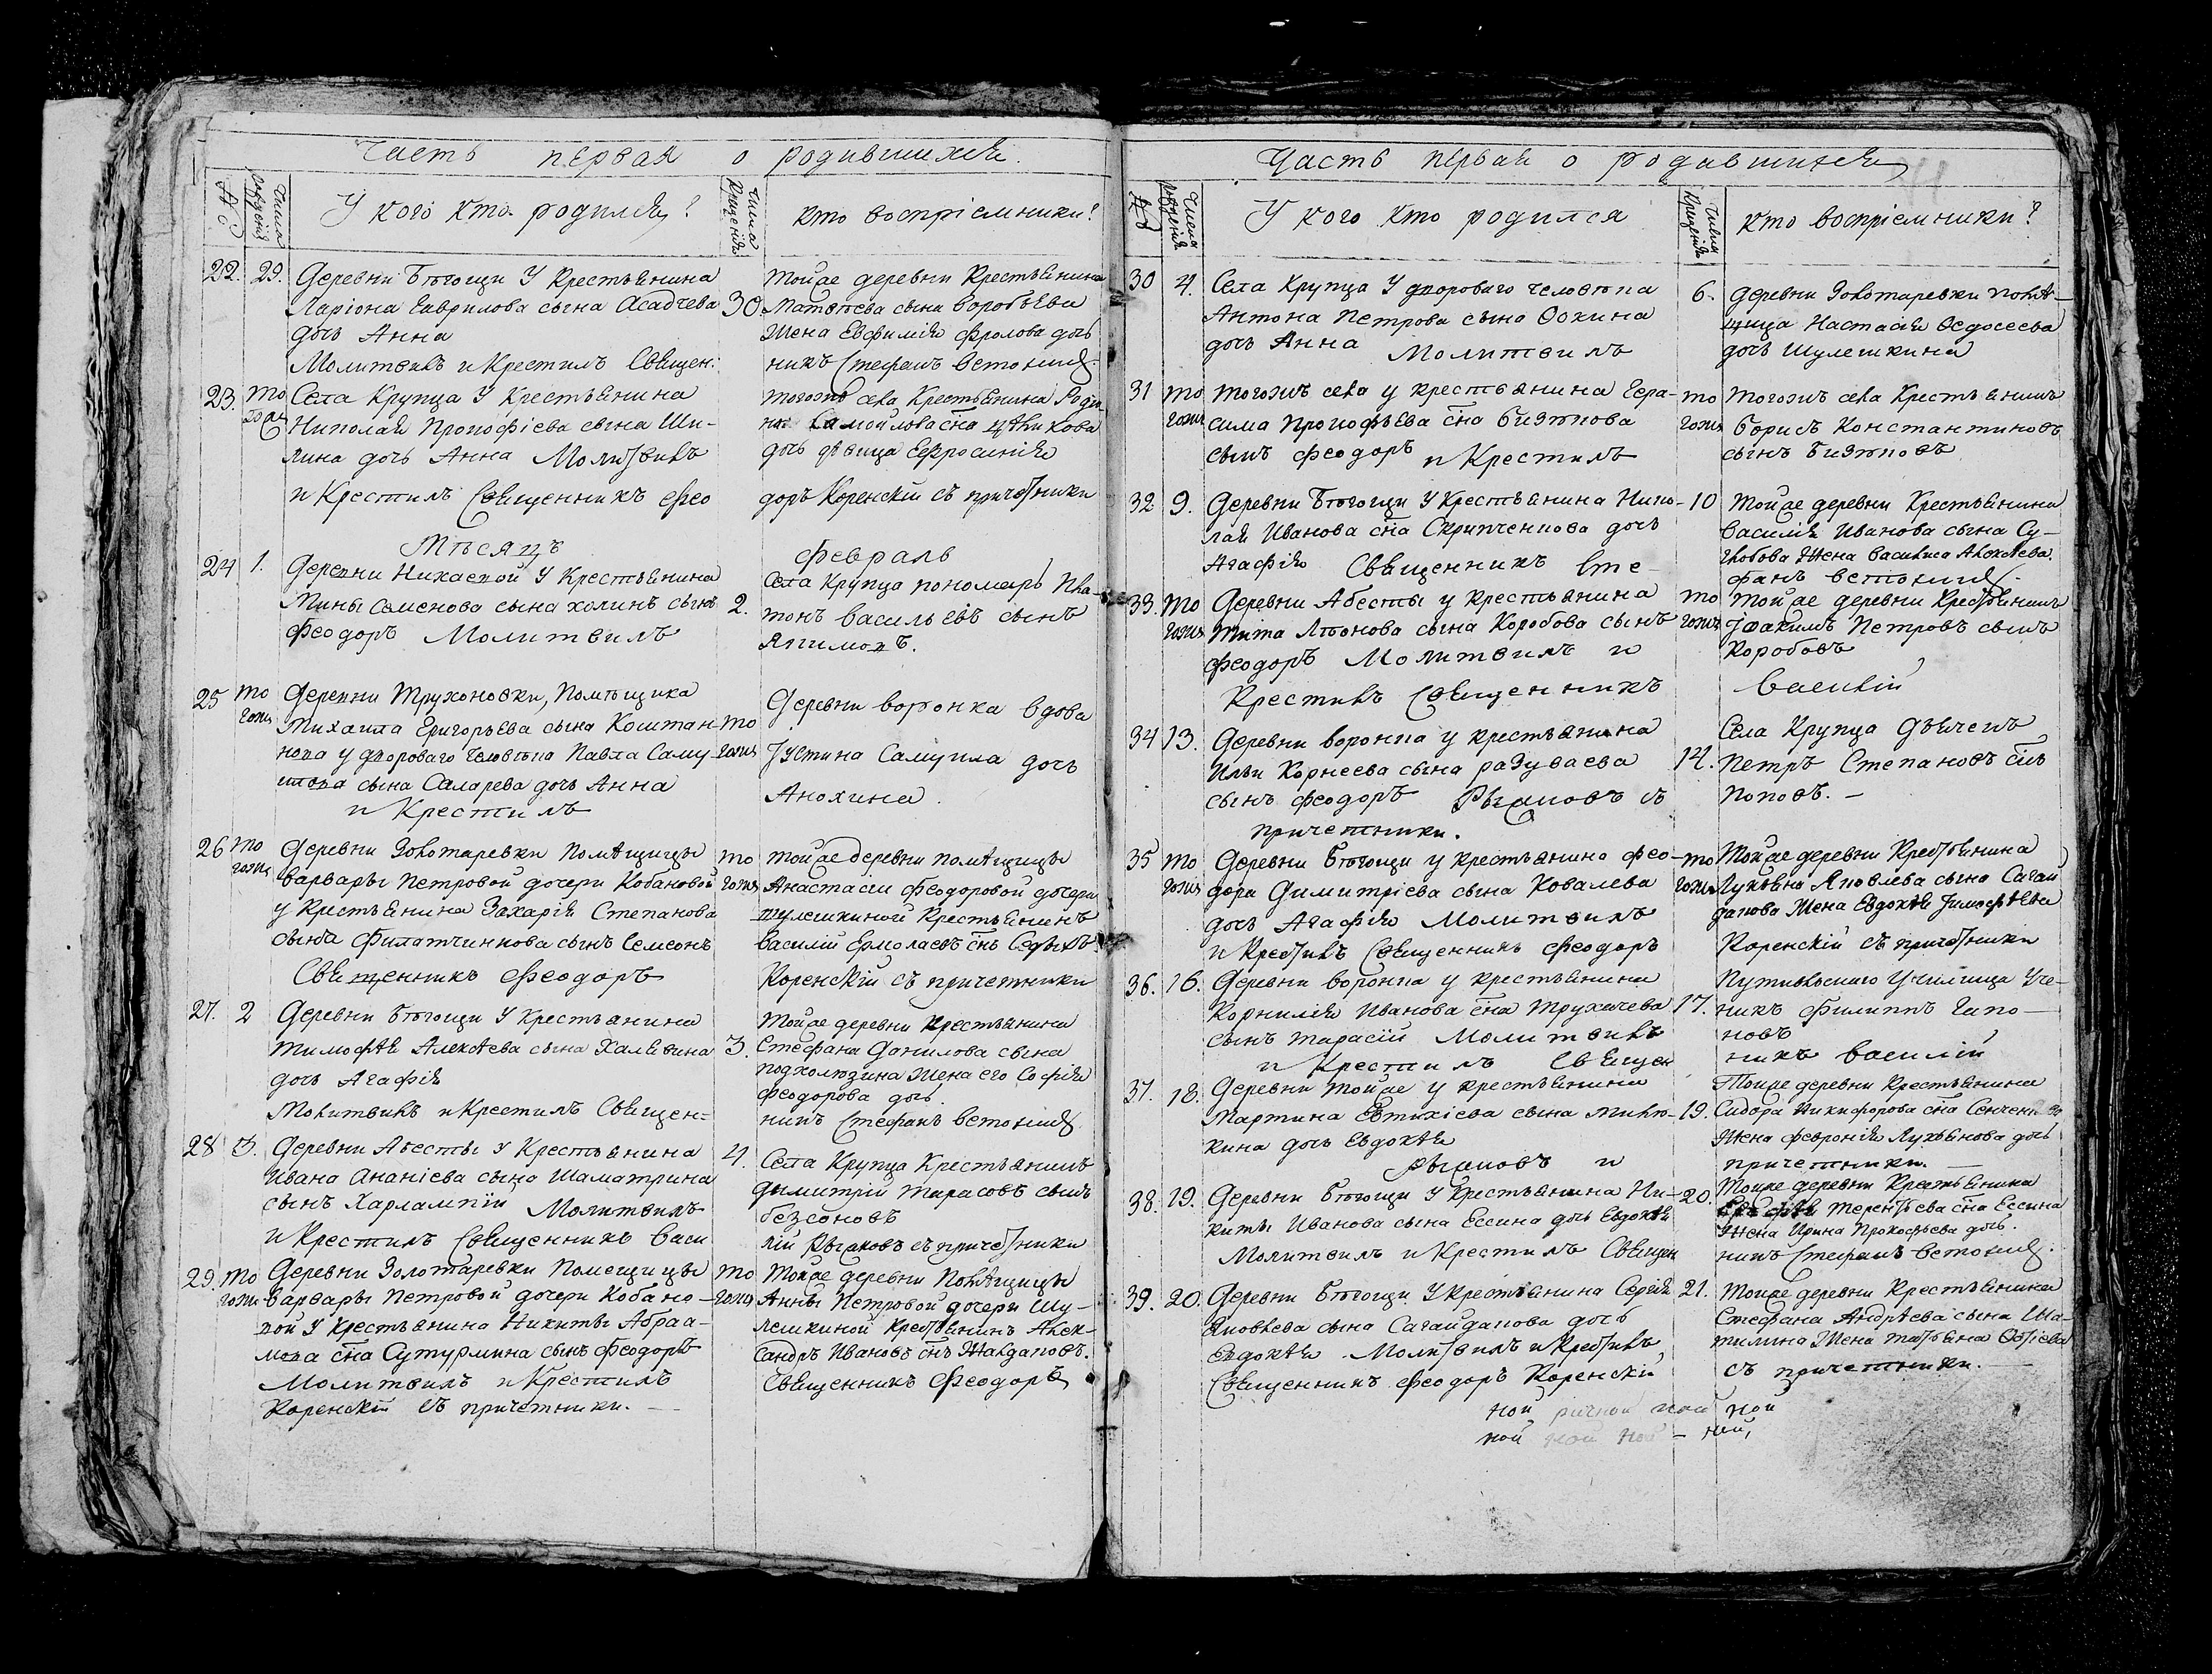 Часть первая о родившихся.
№
Числа рожденія
У кого кто родился?
Числа крещенія
кто воспріемники?
22. 29. Деревни Бѣгощи У Крестьянина
Ларіона Гаврилова сына Асадчева
дочь Анна
Молитвилъ и Крестилъ Священ:
30. Тойже деревни Крестьянина
Матвѣева сына Воробьева
Жена Евфимія Фролова дочь
никъ Стефанъ
23. то гожъ Села Крупца У Крестьянина
Николая Прокофіева сына Ши-
лина дочь Анна Молитвилъ
и Крестилъ Священникъ Ѳео
тогожъ села Крестьянина
Самойлова сна
дочь дѣвица Ефросинія
доръ Коренскій съ причетники
Мѣсяцъ Февраль
24 1. Деревни У Крестьянина
Мины Семенова сына холинъ сынъ
Феодоръ Молитвилъ
2. Села Крупца пономарь Пла-
тонъ Васильевъ сынъ
Якимовъ.
25 то гожъ Деревни Трухоновки, Помѣщика
Михаила Григорьева сына Коштан-
нова у двороваго человѣка Павла Саму-
илова сына Саларева дочь Анна
и Крестилъ
то гожъ Деревни воронка вдова
Іустина Самуила дочь
Анохина.
26 то гожъ Деревни Золотаревки помѣщицы
Варвары Петровой дочери Кобановой
у Крестьянина Захарія Степанова
сына Филатчинкова сынъ Семеонъ
Священникъ Феодоръ
то гожъ тойже деревни помѣщицы
Анастасіи Феодоровой дочери
Шулешкиной Крестьянинъ
Василій Ермолаевъ снъ Седыхъ
Коренскій съ причетники
27. 2 Деревни Бѣгощи У Крестьянина
Тимофѣя Алексѣева сына Халявина
дочь Агафія
Молитвилъ и Крестилъ Священ=
3. Тойже деревни Крестьянина
Стефана Данилова сына
подхолюзина Жена его Софія
Феодорова дочь.
никъ Стефанъ
28 3. Деревни Абесты У Крестьянина
Ивана Ананіева сына Шаматрина
сынъ Харлампій Молитвилъ
и Крестилъ Священникъ Васи
4. Села Крупца Крестьянинъ
Дымитрій Тарасовъ сынъ
безсоновъ
лій Рыжковъ съ причетники
29. то гожъ Деревни Золотаревки Помещицы
Варвары Петровой дочери Кобано-
вой У Крестьянина Никиты Абраа-
мова сна Сутурмина сынъ Феодоръ
Молитвилъ и Крестилъ
Коренскій съ причетники.
то гожъ Тойже деревни Помѣщицы
Анны Петровой дочери Шу-
лешкиной Крестьянинъ Алек-
сандръ Ивановъ снъ Жандаковъ.
Священникъ Феодоръ
Часть первая о родившихся
№
Числа рожденія
У кого кто родился
Числа Крещенія
кто воспріемники?
30 4. Села Крупца У двороваго человѣка
Антона Петрова сына Ѳокина
дочь Анна Молитвилъ
6. деревни Золотаревки помѣ-
щица Настасія Ѳедосеева
дочь Шулешкина
31 то гожъ тогожъ села у крестьянина Гера-
сима Прокофьева сна Бизюкова
сынъ Феодоръ и Крестилъ
то гожъ тогожъ села Крестьянинъ
Борисъ Константиновъ
сынъ
32 9. Деревни Бѣгощи У Крестьянина Нико-
лая Иванова сна Скрипченкова дочь
Агафія Священникъ Сте-
10 Тойже деревни Крестьянина
Василія Иванова сына Су-
глобова Жена Василиса Алексѣева.
фанъ
33. то гожъ Деревни Абесты у крестьянина
Тита Леонова сына Коробова сынъ
Феодоръ Молитвилъ и
Крестилъ Священникъ
то гожъ тойже деревни Крестьянинъ
Іоакимъ Петровъ сынъ
Коробовъ
Василій
34 13. Деревни Воронка у крестьянина
Ильи Корнеева сына радуваева
сынъ Феодоръ Рыжковъ съ
причетники.
14. Села Крупца дьячекъ
Петръ Степановъ снъ
Поповъ. —
35 то гожъ Деревни Бѣгощи у крестьянина Фео-
дора Димитріева сына Ковалева
дочь Агафія Молитвилъ
и Крестилъ Священникъ Феодоръ
то гожъ Тойже деревни Крестьянина
Лукьяна Яковлева сына Сагай
дакова Жена Евдокѣя Тимофѣева
Коренскій съ причетники
36. 16. Деревни Воронка у крестьянина
Корнилія Иванова сна Трухачева
сынъ Тарасій Молитвилъ
и Крестилъ Священ
17. Путивльскаго Училища Уче-
никъ Филиппъ Гапо-
новъ
никъ Василій
37. 18. Деревни тойже у крестьянина
Мартина Евтихіева сына Милю-
кина дочь Евдокѣя
Рыжковъ и
19. Тойже деревни Крестьянина
Сидора Никифорова сна
Жена Февронія Лукьянова дочь
причетники.
38. 19. Деревни Бѣгощи У Крестьянина Ни-
киты Иванова сына Ессина дочь Евдокѣя
Молитвилъ и Крестилъ Священ
20. Тойже деревни Крестьянина
Терентьева сна Ессина
Жена Ирина Прокофьева дочь.
никъ Стефанъ
39. 20. Деревни Бѣгощи У Крестьянина Сергія
Яковлева сына Сагайдакова дочь
Евдокѣя Молитвилъ и Крестилъ
Священникъ Феодоръ Коренскій
21. Тойже деревни Крестьянина
Стефана Андрѣева сына Ша-
тилина Жена Татьяна
съ причетники.
ной ной ной
ной ной ной — ной,